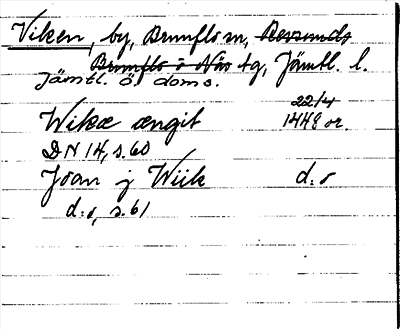 Viken, by, Brunflo sn, Revsunds
Brunflo o Näs tg, Jämtl. l.
Jämtl. ö. doms.
Wikæ ængit 22/4 1448 or.
DN 14, s. 60
Joan j Wiik d:o
d:o, s. 61